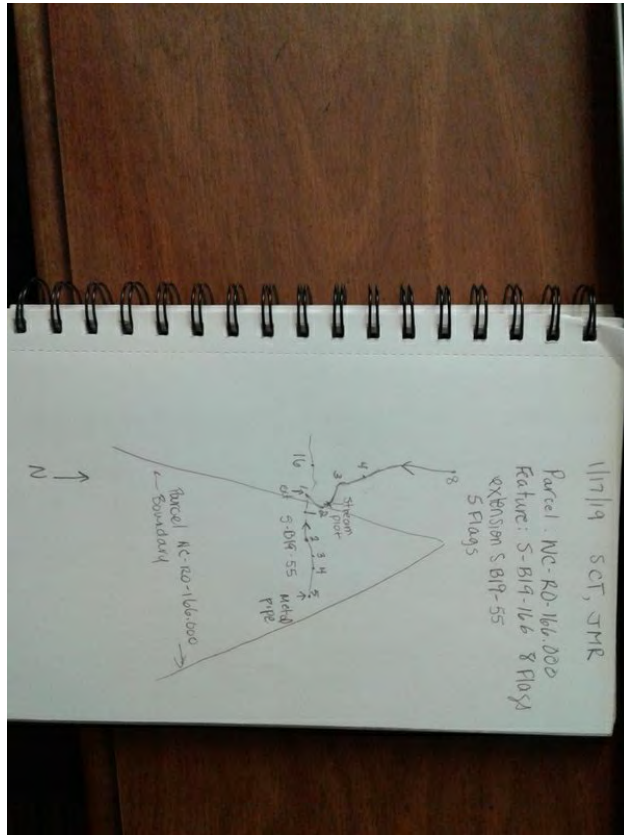 1/17/19 SCT, JMR
Parcel: NC-RO-166.000
Feature: S-B19-166 8 Flags
extension S B19-55
5 Flags
8
4
3
Stream
plot
2
1
16
1 2 3 4 5
S-B19-55
Metal
pipe
Parcel NC-RO-166.000
Boundary
N